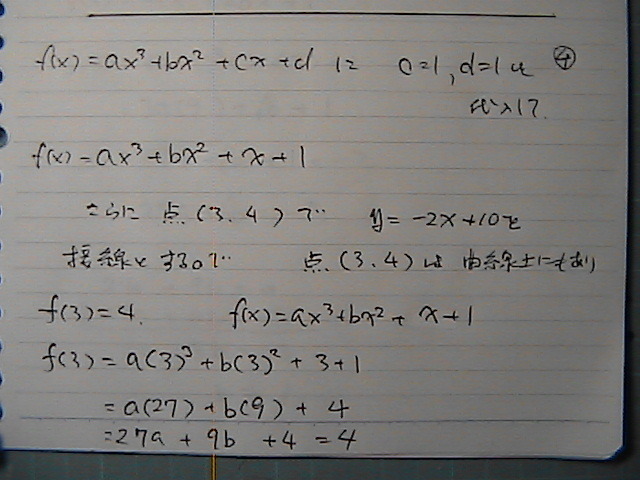 f(x)=ax³+bx²+cx+d に c=1, d=1を ④
代入して
f(x)=ax³+bx²+x+1
さらに 点(3.4)で y=-2x+10を
接線とするので 点(3.4)は 曲線上にもあり
f(3)=4. f(x)=ax³+bx²+x+1
f(3)=a(3)³+b(3)²+3+1
=a(27)+b(9)+4
=27a+9b+4=4